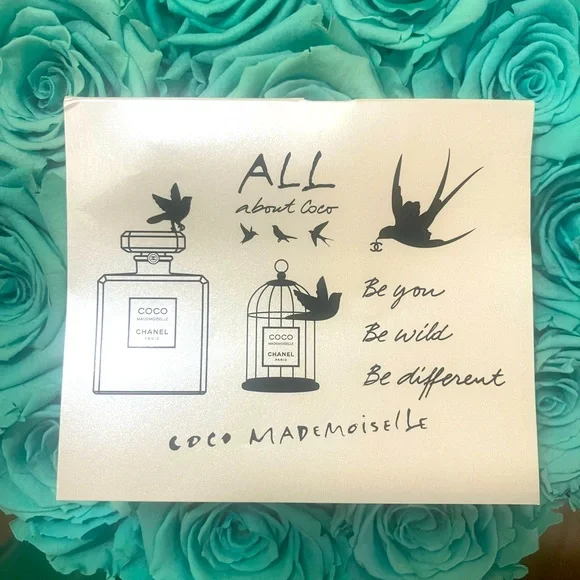 ALL
about Coco
COCO
MADEMOISELLE
CHANEL
PARIS
COCO
MADEMOISELLE
CHANEL
PARIS
Be you
Be wild
Be different
COCO MADEMOISELLE